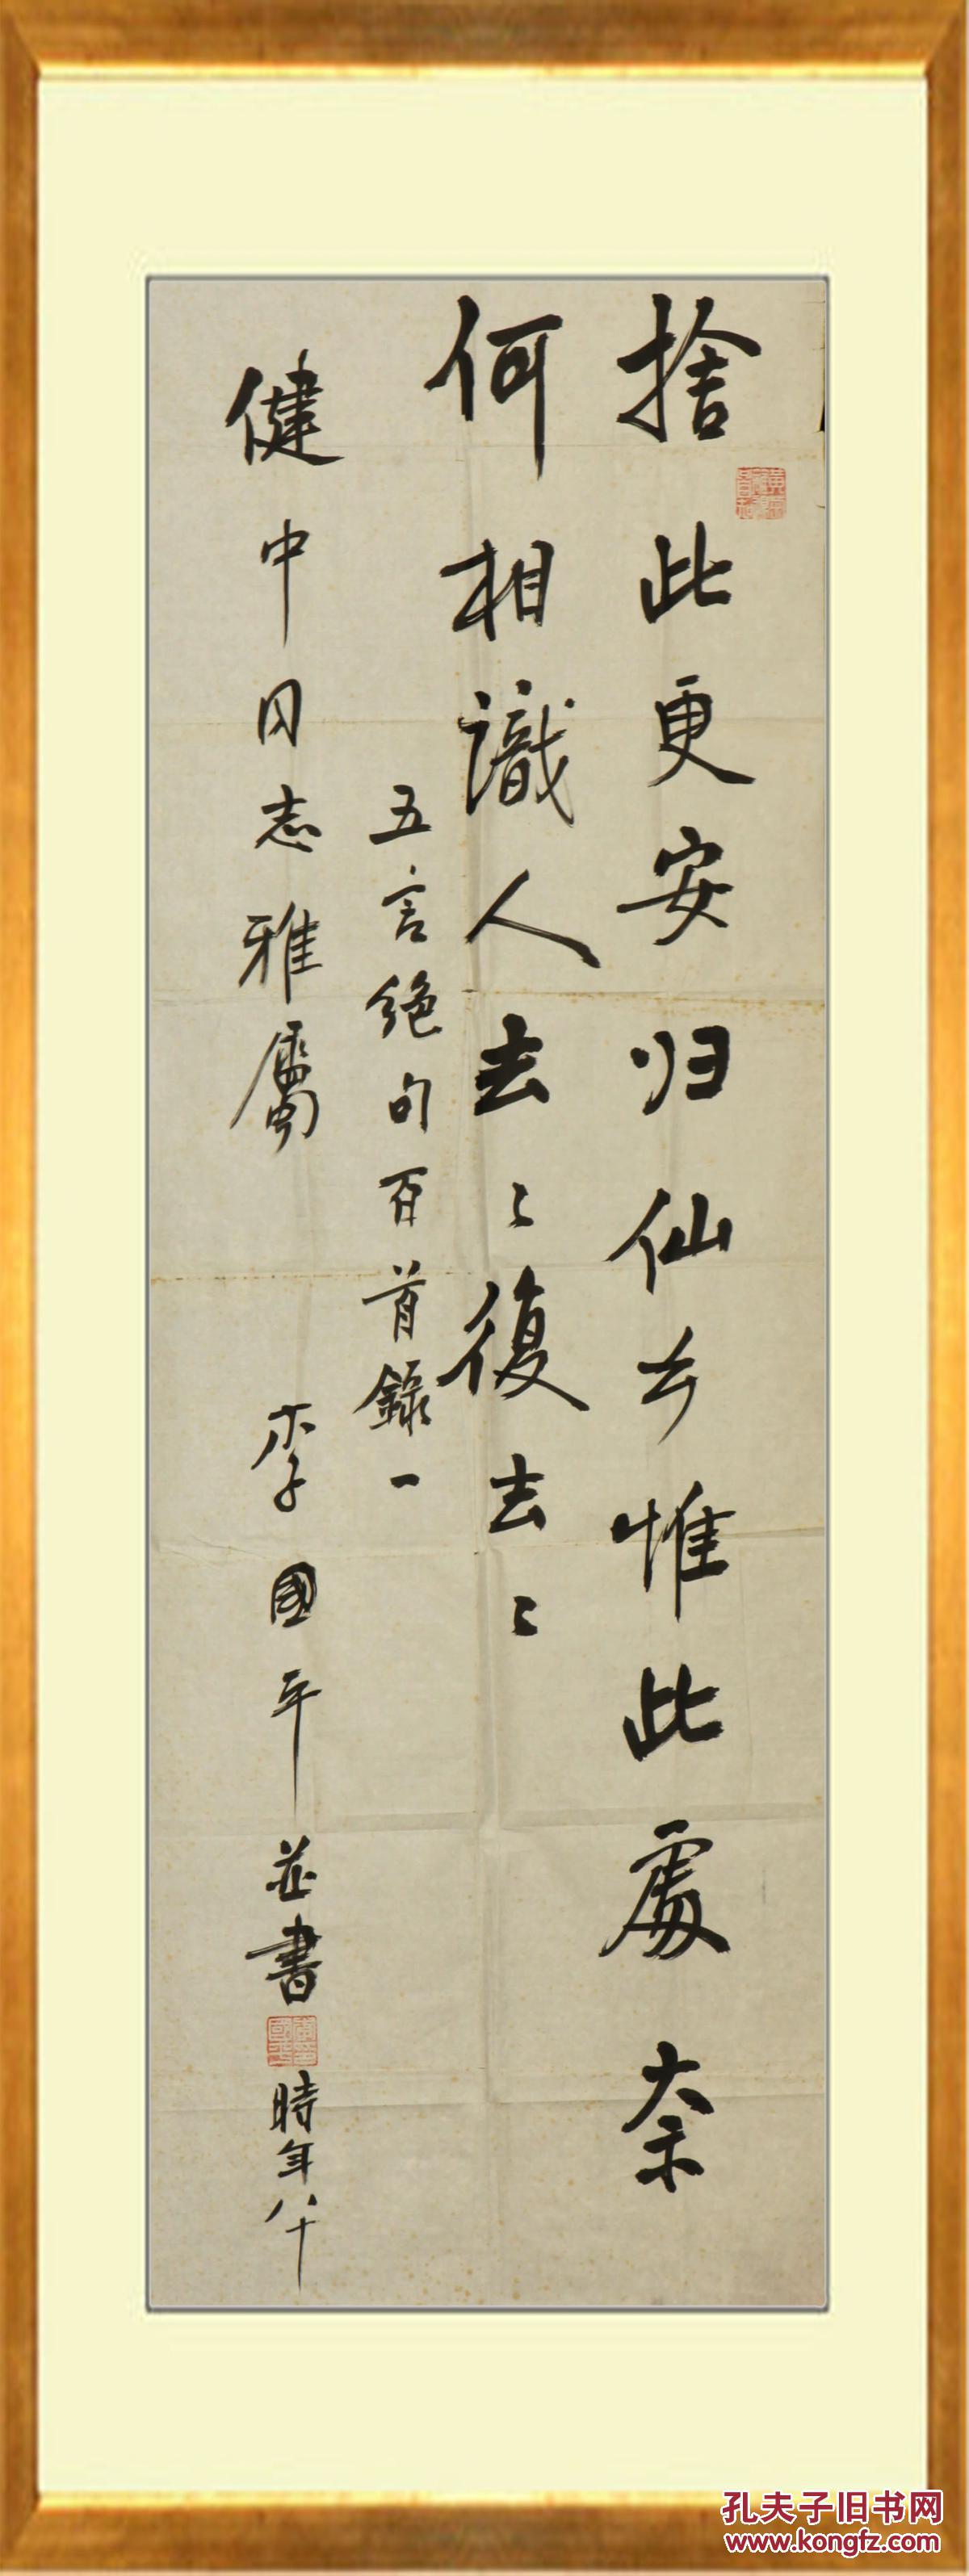 捨此更安归仙乡惟此處奈
何相識人去〻復去〻
五言绝句百首錄一
健中同志雅屬 李國平並書
時年八十
孔夫子旧书网
www.kongfz.com